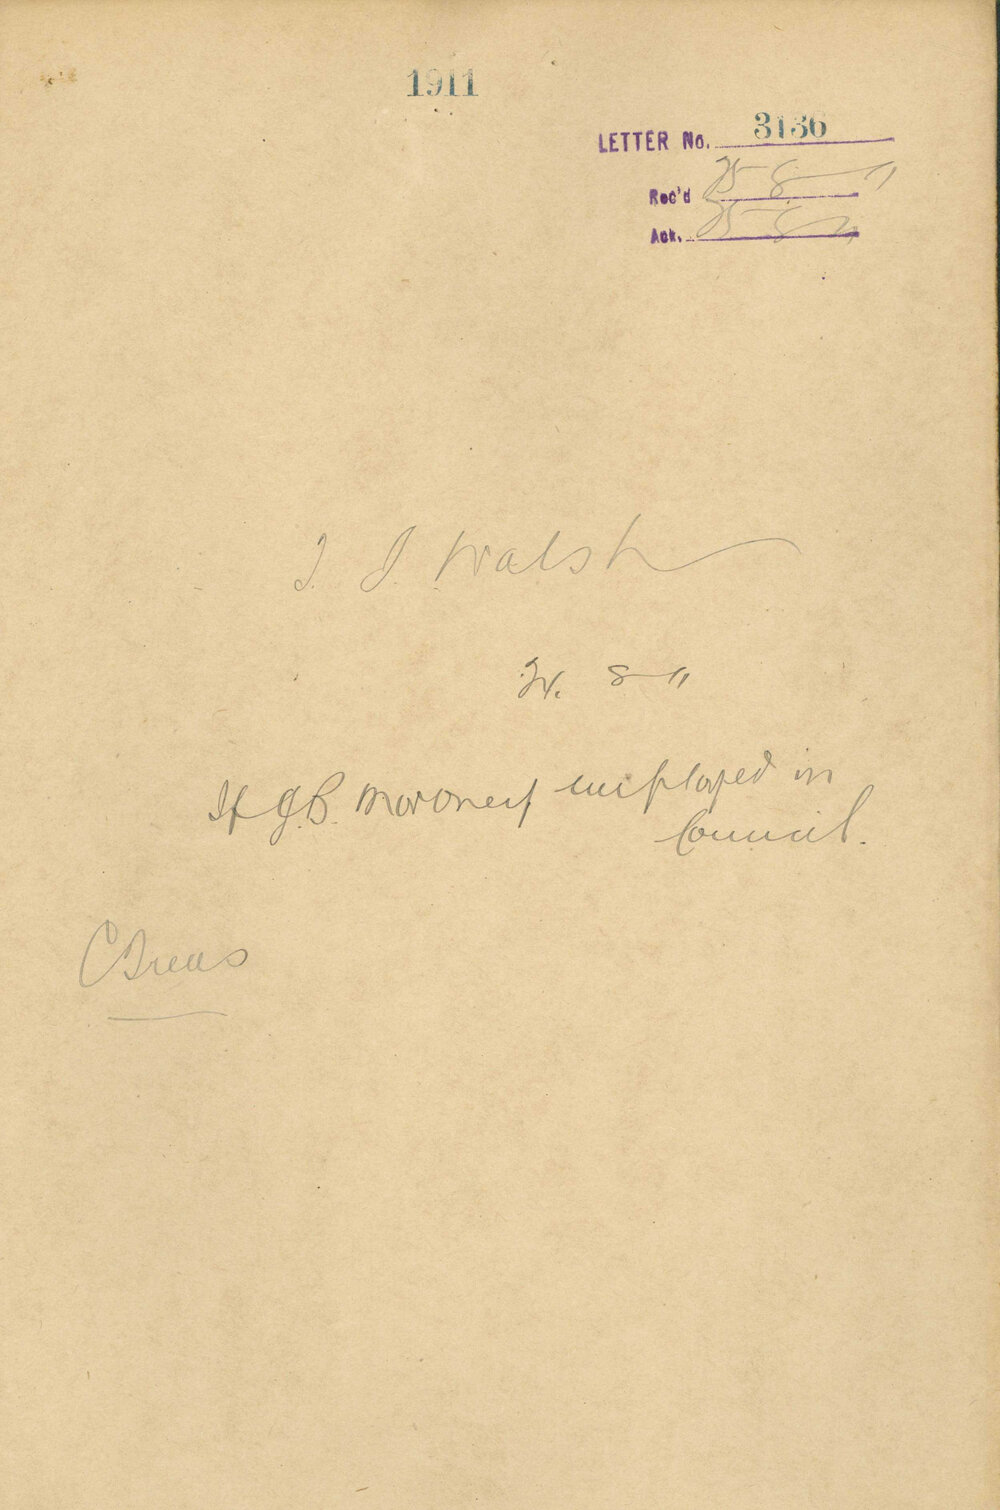 1911
LETTER No. 3136
Rec'd 25-8-11
Ack. 25-8-11
J. J. Walsh
24. 8-11
If J.B. Moroney employed in
Council.